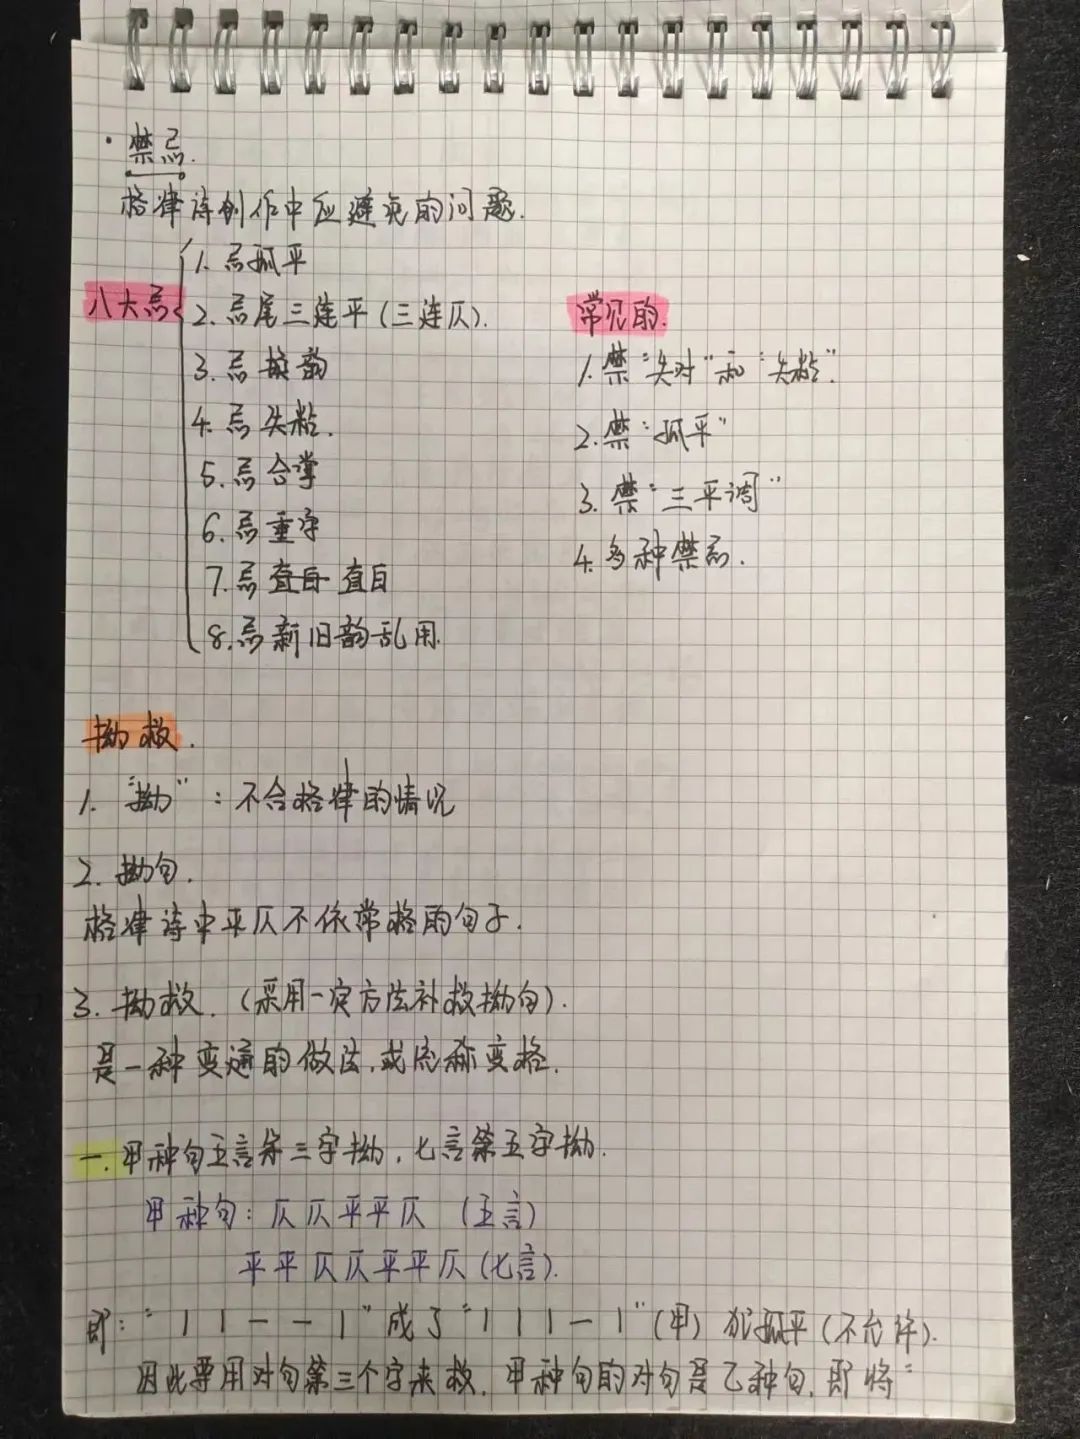 · 禁忌.
格律诗创作中应避免的问题.
八大忌
1. 忌孤平
2. 忌尾三连平(三连仄).
3. 忌撞韵
4. 忌失粘.
5. 忌合掌
6. 忌重字
7. 忌直白 直白
8. 忌新旧韵乱用.
常见的.
1. 禁“失对”和“失粘”.
2. 禁“孤平”
3. 禁“三平调”
4. 多种禁忌.
拗救.
1. “拗”:不合格律的情况
2. 拗句.
格律诗中平仄不依常格的句子.
3. 拗救.(采用一定方法补救拗句).
是一种变通的做法,或应称变格.
一. 甲种句五言第三字拗,七言第五字拗.
甲种句: 仄仄平平仄 (五言)
平平仄仄平平仄(七言).
即:“丨丨一一丨”成了“丨丨丨一丨”(甲) 孤平(不允许).
因此要用对句第三个字来救,甲种句的对句是乙种句,即将“